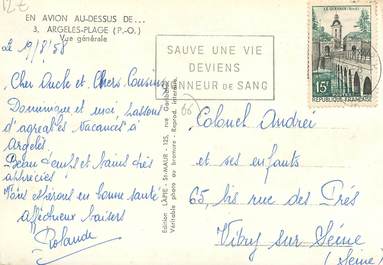 12€
EN AVION AU-DESSUS DE...
3. ARGELÈS-PLAGE (P.-O.)
Vue générale
Le 19/8/58
Cher Oncle et Chers Cousins
Dominique et moi, passons
d'agréables vacances à
Argelès.
Beau temps et bains très
appréciés!
Vous espérons en bonne santé
Affectueux baisers
Rolande
Edition LAPIE - St-MAUR - 125, rue
Véritable photo au bromure - Reprod. interdite
SAUVE UNE VIE
DEVIENS
DONNEUR DE SANG
(66)
LE QUESNOY (Nord)
15F
RÉPUBLIQUE FRANÇAISE
Colonel Andréi
et ses enfants
65, bis rue des Prés
Vitry sur Seine
(Seine)